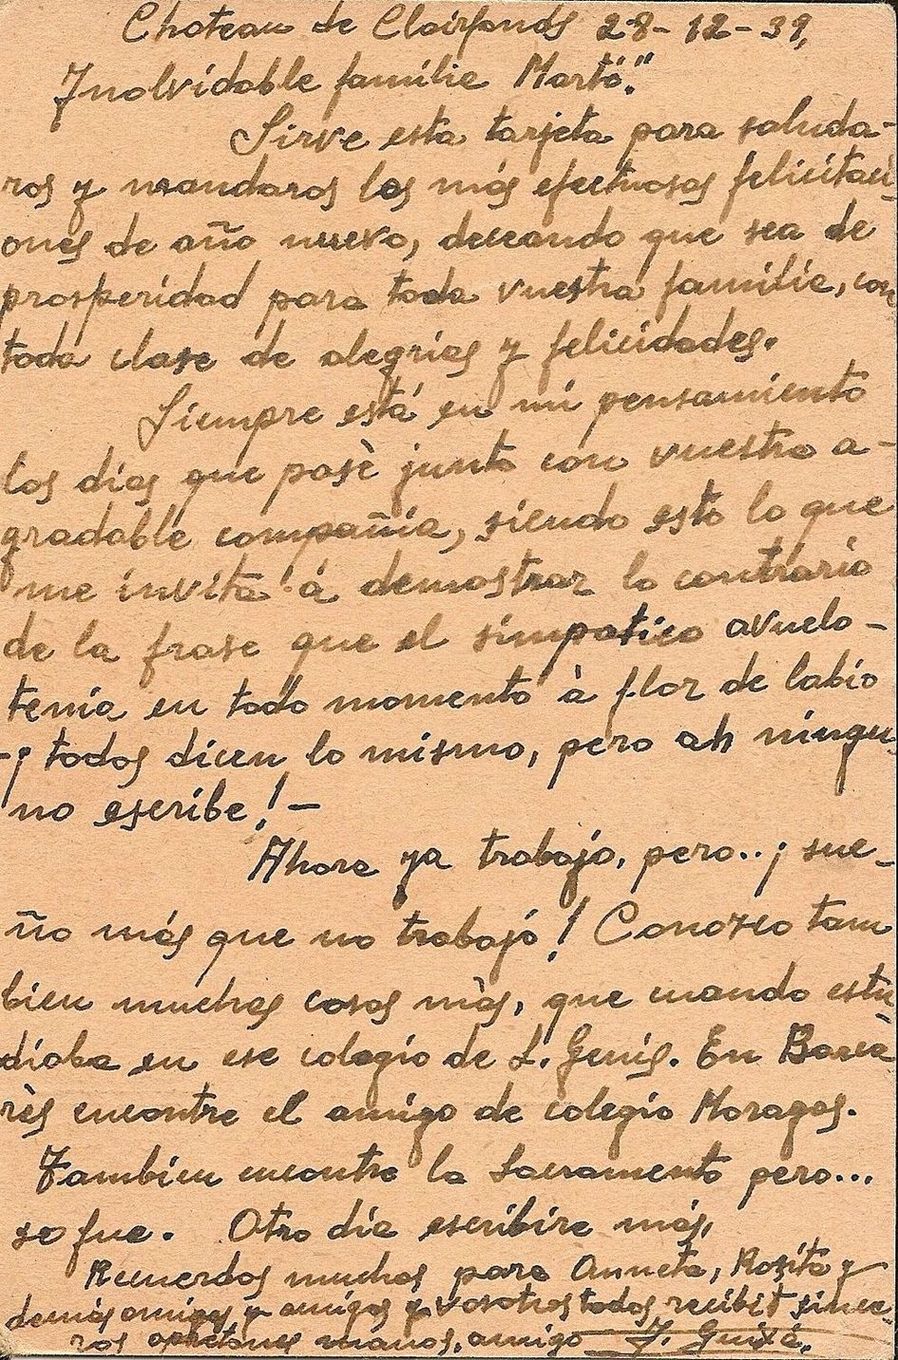 Chateau de Clairfonds 28-12-39,
Inolvidable familia Martó."
Sirve esta tarjeta para saluda-
ros y mandaros las más efectuosas felicitaci-
ones de año nuevo, deceando que sea de
prosperidad para toda vuestra familia, con
toda clase de alegrias y felicidades.
Siempre está en mi pensamiento
los dias que pasè junto con vuestra a-
gradable compañia, siendo esto lo que
me invita á demostrar lo contrario
de la frase que el simpatico avuelo-
tenia en todo momento à flor de labio
-¡ todos dicen lo mismo, pero ah ningu
no escribe! -
Ahora ya trabajo, pero..¡ sue-
ño más que no trabajó! Conozco tam
bien muchas cosas màs, que cuando estu
diaba en ese colegio de S. Genis. En Barca
rès encontre el amigo de colegio Moragas.
Tambien encontre la Sacramento pero...
se fue. Otro dia escribire más,
Recuerdos muchos para Anneta, Rosita y
demás amigas y amigos y vosotros todos recibit since-
ros apretones manos, amigo J. Guixá.